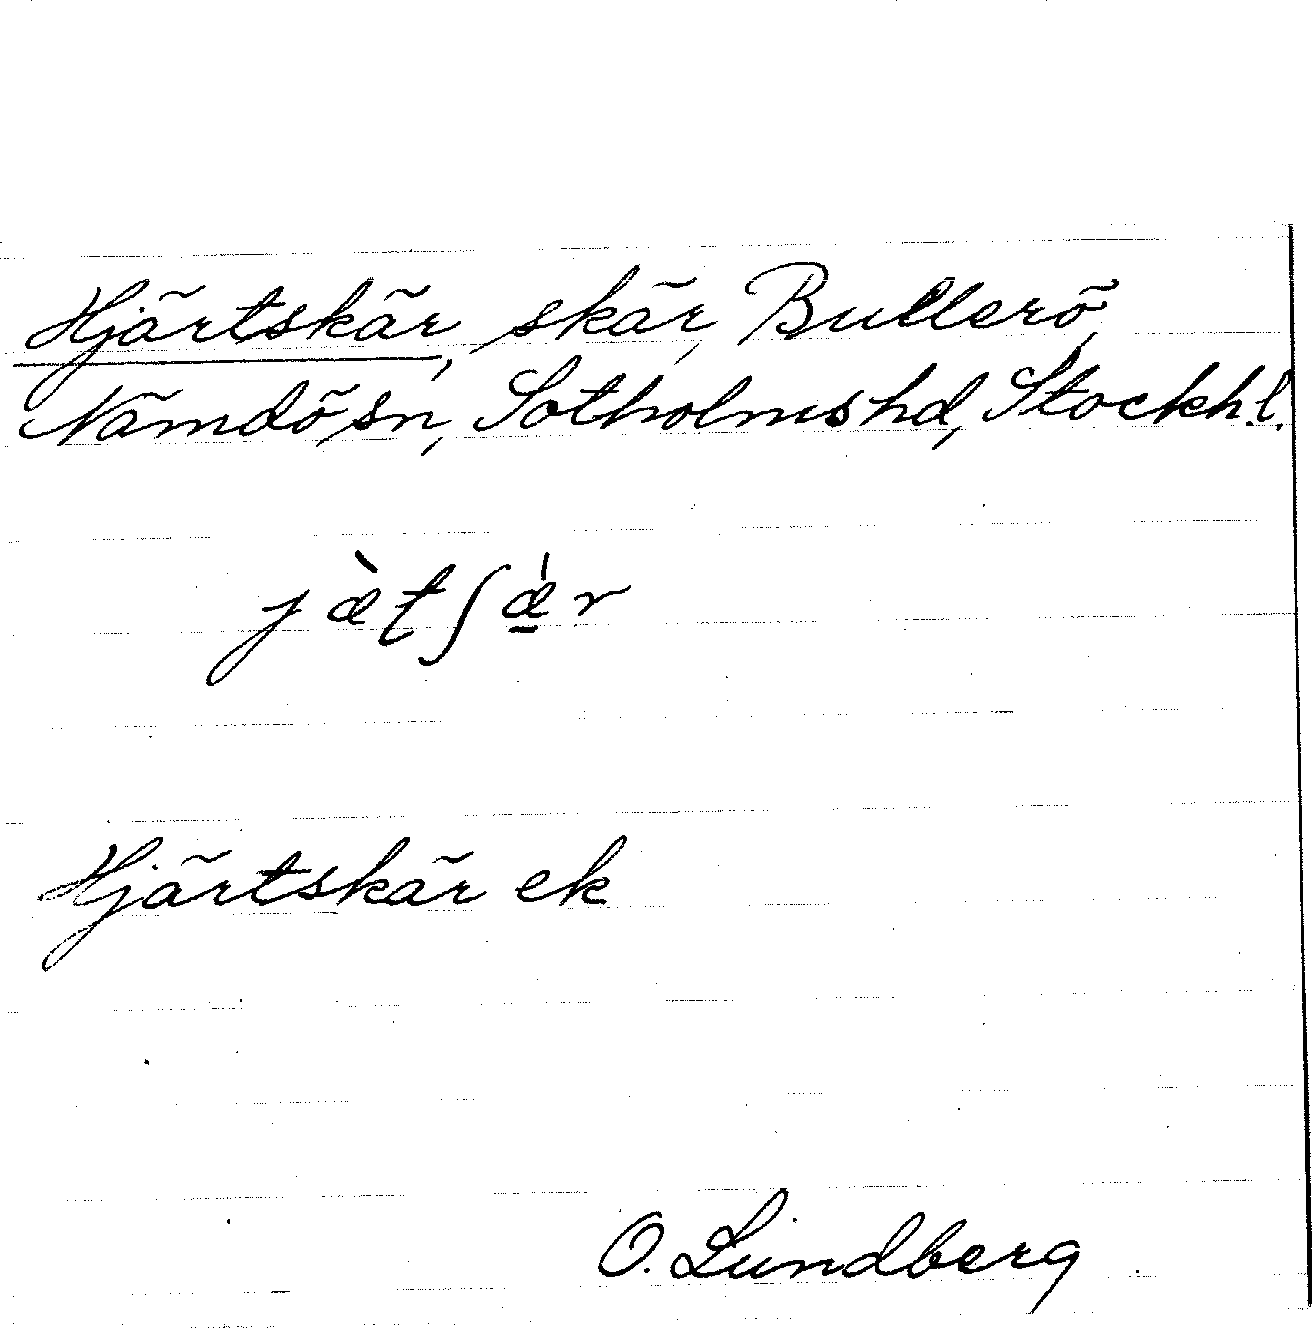 Hjärtskär, skär, Bullerö,
Nämdö sn, Sotholms hd, Stockh. l.
jæ̀tʃæ̠̍r
Hjärtskär ek
O. Lundberg